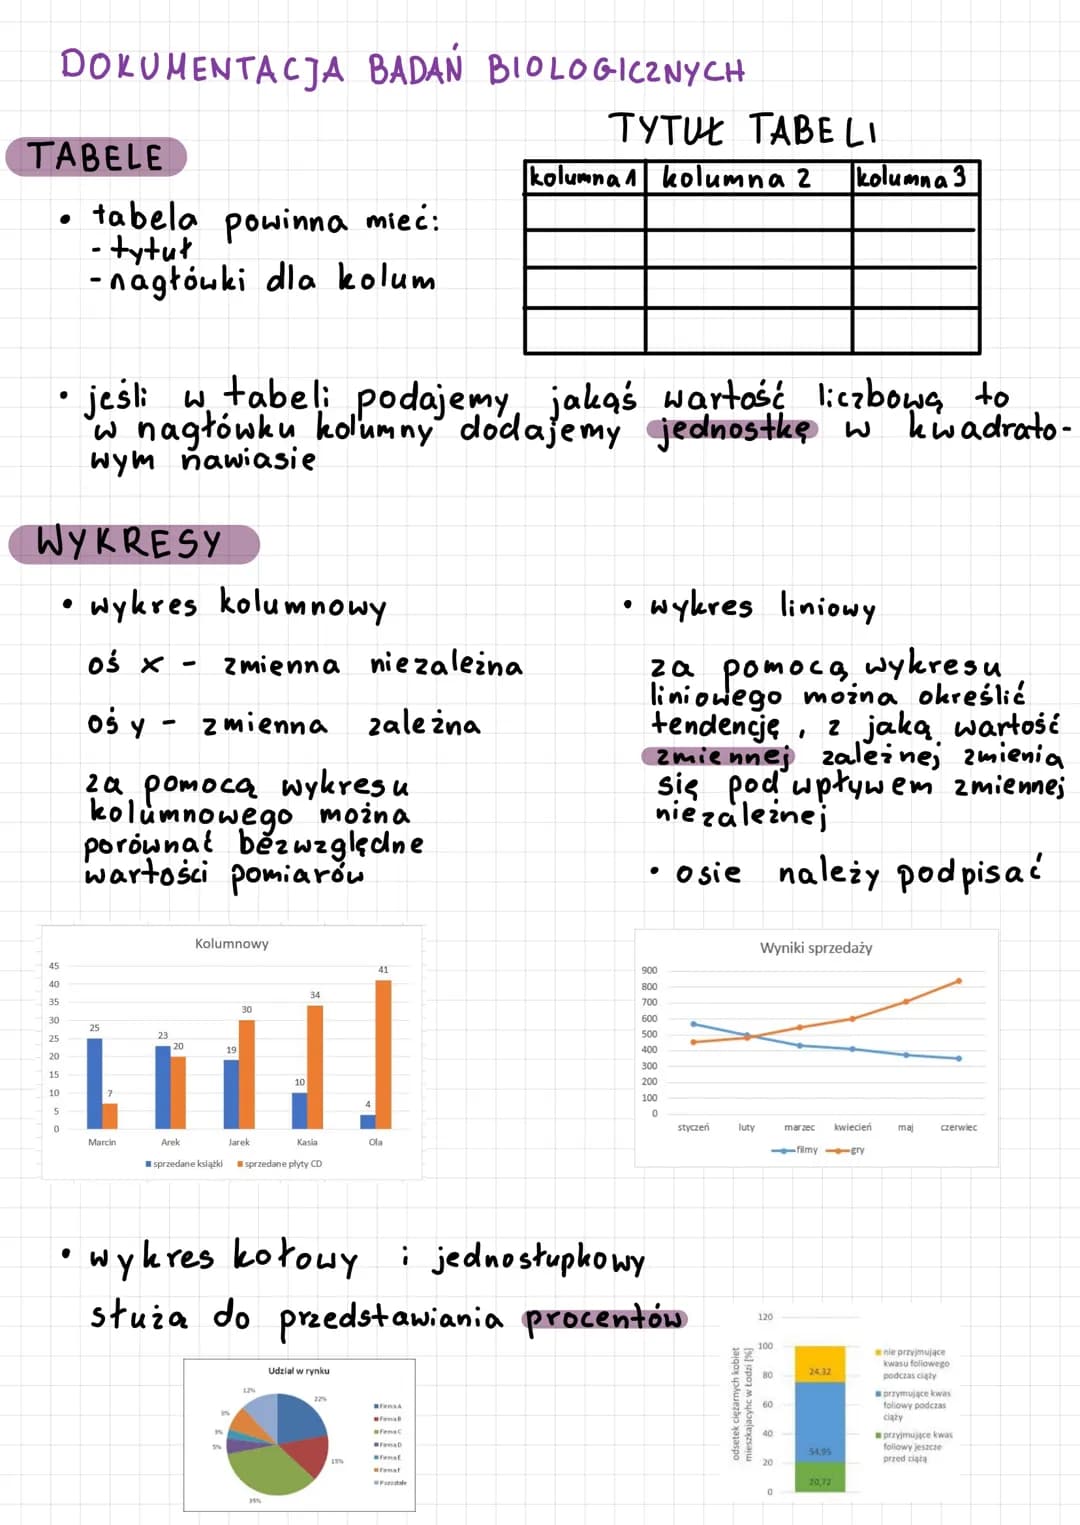 DOKUMENTACJA BADAŃ BIOLOGICZNYCH
TABELE
TYTUŁ TABELI
kolumna 1 kolumna 2 kolumna 3
• tabela powinna mieć:
- tytuł
- nagłówki dla kolum
• jeśli w tabeli podajemy jakąś wartość liczbową to
w nagłówku kolumny dodajemy jednostkę w kwadrato-
wym nawiasie
WYKRESY
• wykres kolumnowy
oś x - zmienna niezależna
oś y - zmienna zależna
za pomocą wykresu
kolumnowego można
porównać bezwzględne
wartości pomiarów
• wykres liniowy
za pomocą wykresu
liniowego można określić
tendencję, z jaką wartość
zmiennej zależnej zmienia
się pod wpływem zmiennej
niezależnej
• osie należy podpisać
Kolumnowy
45
40
35
30
25
20
15
10
5
0
25 7 23 20 19 30 10 34 4 41
Marcin Arek Jarek Kasia Ola
sprzedane książki sprzedane płyty CD
Wyniki sprzedaży
900
800
700
600
500
400
300
200
100
0
styczeń luty marzec kwiecień maj czerwiec
filmy gry
• wykres kołowy i jednosłupkowy
służą do przedstawiania procentów
Udział w rynku
12%
22%
15%
35%
5%
3%
Firma A
Firma B
Firma C
Firma D
Firma E
Firma F
Pozostałe
odsetek ciężarnych kobiet
mieszkajacyhc w Łodzi [%]
120
100
80
60
40
20
0
24,32
54,95
20,72
nie przyjmujące
kwasu foliowego
podczas ciąży
przymujące kwas
foliowy podczas
ciąży
przyjmujące kwas
foliowy jeszcze
przed ciążą